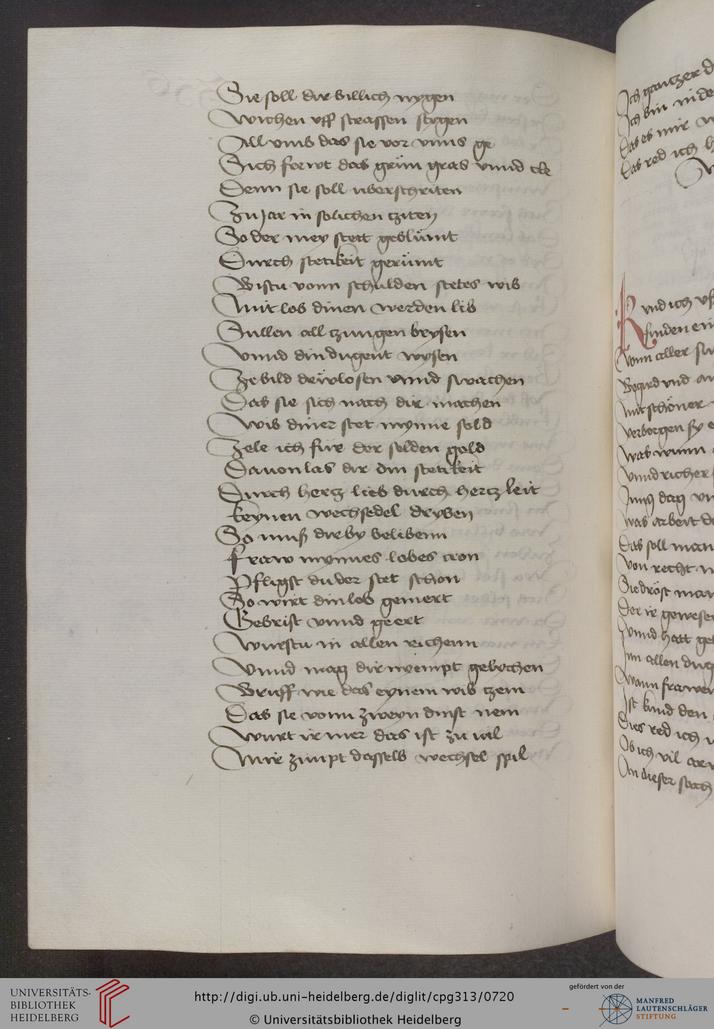 Sie soll dir billich nygen
Wichen vff strassen stygen
All vmb das sie vor vnns ge
Sich frewt das grün gras vnnd cle
Denn sie soll vberschriten
Zu Jar in solichen cziten
So der mey stett geblümt
Durch stetikeit gerümt
Bistu vonn schulden stetes wib
Mit lob dinen werden lib
Sullen all czungen brysen
Vnnd din dugent wysen
Ze bild den wlosen vnnd swachen
Das sie sich nach dir machen
Wib diner stet mynne sold
Zele ich für der selden gold
Dauon las dir din stetikeit
Durch hertz lieb durch hertz leit
Keynen wechsedel dryben
So muß die by belibenn
Fraw mynnes lobes cron
Pfligst du der stet schon
So wirt din lob gemert
Gebrist vnnd geert
Wurstu in allen richenn
Vnnd mag dir nyempt gelichen
Bruff wie das eynem wib czem
Das sie vonn zweyn dinst nem
Wurt ir mer das ist zu uil
Mir zimpt dasselb wechsel spil
Ich
Ich bin in
Das es mir
Das red ich
W
Kund ich
finden
Vonn aller
Begird vnd
Mit schöner
Verborgen
Was wunn
Vnnd richer
Jung dag
Was arbeit
Das soll man
Von recht
Sie dröst man
Der ir gewesen
Vnnd hatt
Inn allen dug
Wann frawen
Ist kund den
Dies red ich
Ob ich vil
An dieser sach
UNIVERSITÄTS-
BIBLIOTHEK
HEIDELBERG
http://digi.ub.uni-heidelberg.de/diglit/cpg313/0720
© Universitätsbibliothek Heidelberg
gefördert von der
MANFRED
LAUTENSCHLÄGER
STIFTUNG